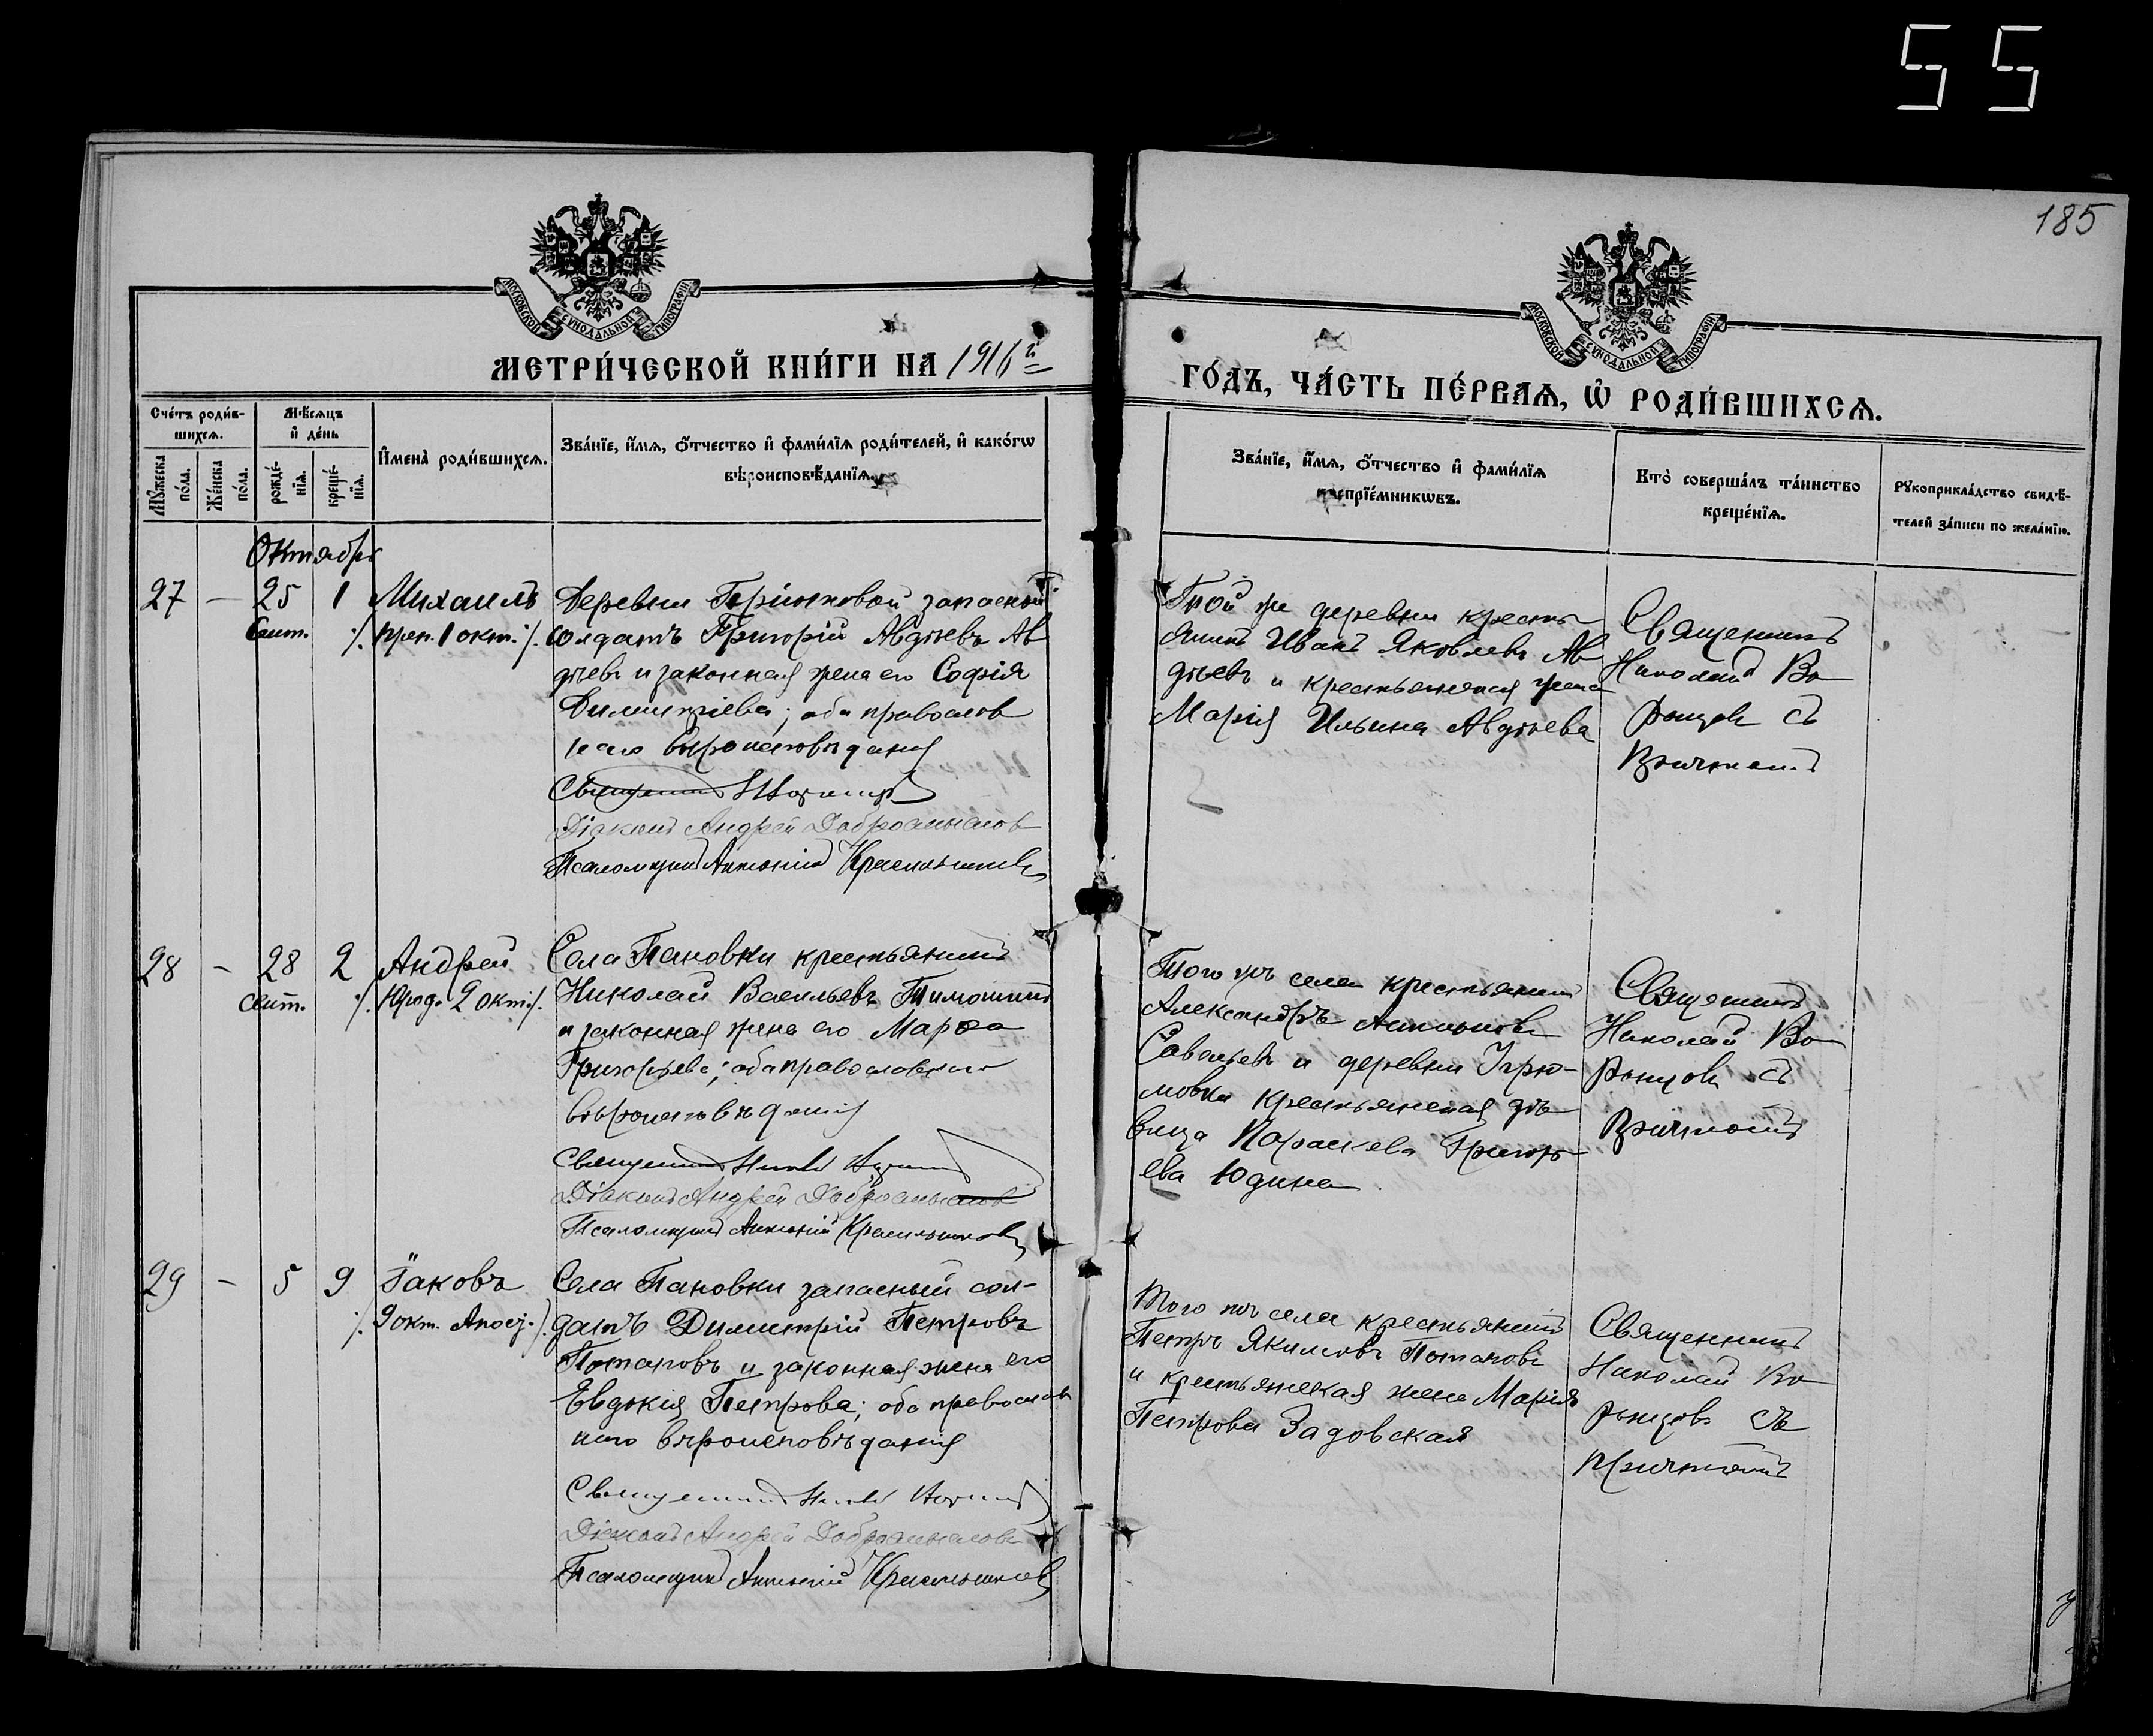 55
185
МОСКОВСКОЙ СѴНОДАЛЬНОЙ ТИПОГРАФІИ
МОСКОВСКОЙ СѴНОДАЛЬНОЙ ТИПОГРАФІИ
МЕТРИ́ЧЕСКОЙ КНИ́ГИ НА 1916й
ГО́ДЪ, ЧА́СТЬ ПЕ́РВАѦ, Ѡ҆ РОДИ́ВШИХСѦ.
Сче́тъ роди́в-
шихсѧ.
Мꙋ́жеска по́ла.
Же́нска по́ла.
Мѣ́сѧцъ
и҆ де́нь
рожде́-
нїѧ.
креще́-
нїѧ.
И҆мена̀ роди́вшихсѧ.
Зва́нїе, и҆́мѧ, ѻ҆́тчество и҆ фами́лїѧ роди́телей, и҆ како́гѡ
вѣроисповѣ́данїѧ.
Зва́нїе, и҆́мѧ, ѻ҆́тчество и҆ фами́лїѧ
воспрїе́мникѡвъ.
Кто̀ соверша́лъ та́инство
креще́нїѧ.
Рꙋкоприкла́дство свидѣ́-
телей за́писи по жела́нїю.
Октябрь
27 – 25 1 Михаилъ
Сент. /. преп. 1 окт. /.
Деревни запасный
солдатъ Григорій Авдѣевъ Ав
дѣевъ и законная жена его Софія
Димитріева; оба православ
наго вѣроисповѣданія
Священникъ
Діаконъ Андрей Добросмысловъ
Псаломщикъ Антоній Красильниковъ
Той же деревни кресть
янинъ Иванъ Яковлевъ Ав
дѣевъ и крестьянская жена
Марія Ильина Авдѣева
Священникъ
Николай Во
ронцовъ съ
Причтомъ
28 – 28 2 Андрей
Сент. /. Юрод. 2 окт. /.
Села Пановки крестьянинъ
Николай Васильевъ Тимошинъ
и законная жена его Марѳа
Григорьева; оба православнаго
вѣроисповѣданія
Священникъ
Діаконъ Андрей Добросмысловъ
Псаломщикъ Антоній Красильниковъ
Того жъ села крестьянинъ
Александръ Антоновъ
Савельевъ и деревни Угрю-
мовки крестьянская дѣ
вица Параскева Григорь
ева Юдина
Священникъ
Николай Во
ронцовъ съ
Причтомъ
29 – 5 9 Іаковъ
/. 9 окт. Апост. /.
Села Пановки запасный сол-
датъ Димитрій Петровъ
Потаповъ и законная жена его
Евдокія Петрова; оба православ
наго вѣроисповѣданія
Священникъ
Діаконъ Андрей Добросмысловъ
Псаломщикъ Антоній Красильниковъ
Того жъ села крестьянинъ
Петръ Якимовъ Потаповъ
и крестьянская жена Марія
Петрова Задовская
Священникъ
Николай Во
ронцовъ съ
Причтомъ